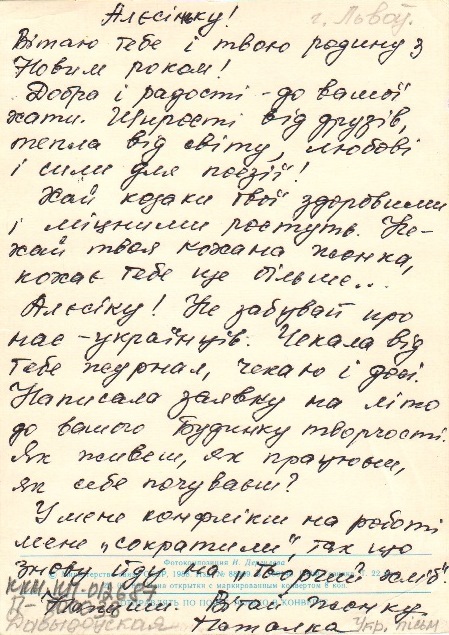 Алєсіньку!
г. Львоў.
Вітаю тебе і твою родину з
Новим роком!
Добра і радості - до вашої
хати. Щирості від друзів,
тепла від світу, любові
і сили для поезії!
Хай козаки твої здоровими
і міцними ростуть. Не-
хай твоя кохана жонка,
кохає тебе ще більше...
Алєсіку! Не забувай про
нас - українців. Чекала від
тебе журнал, чекаю і досі.
Написала заявку на літо
до вашого Будинку творчості.
Як живеш, як працюєш,
як себе почуваєш?
У мене конфлікт на роботі
мене „сократили", так що
Фотокомпозиция И.
знову йду на „вторий хліб".
открытки с маркированным конвертом
ККМ КП-012687
П-
Давыдоўская
Вітай жонку
Наталка
Укр. пісьм